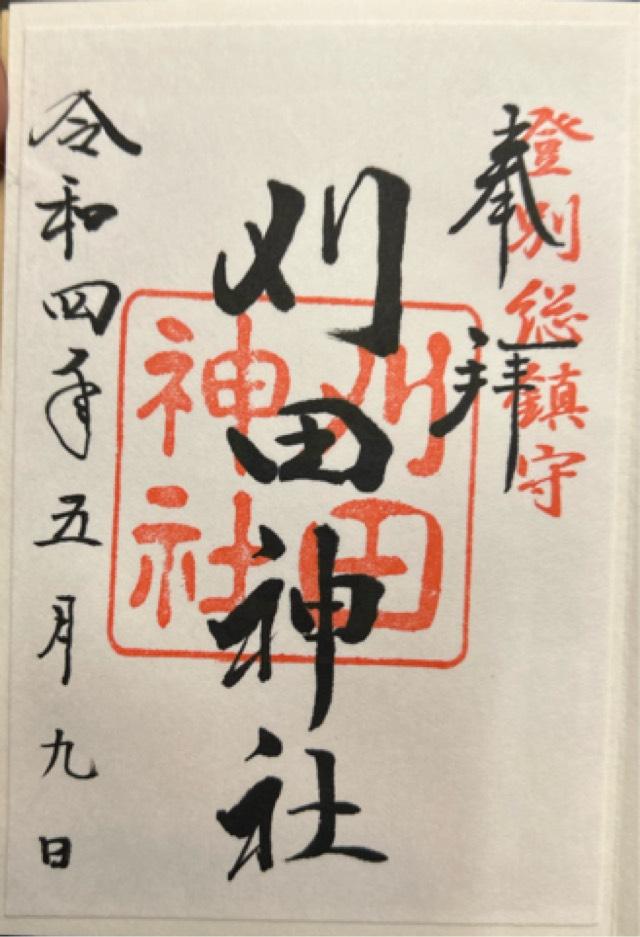 登別総鎮守
奉拝
刈田神社
刈田
神社
令和四年五月九日